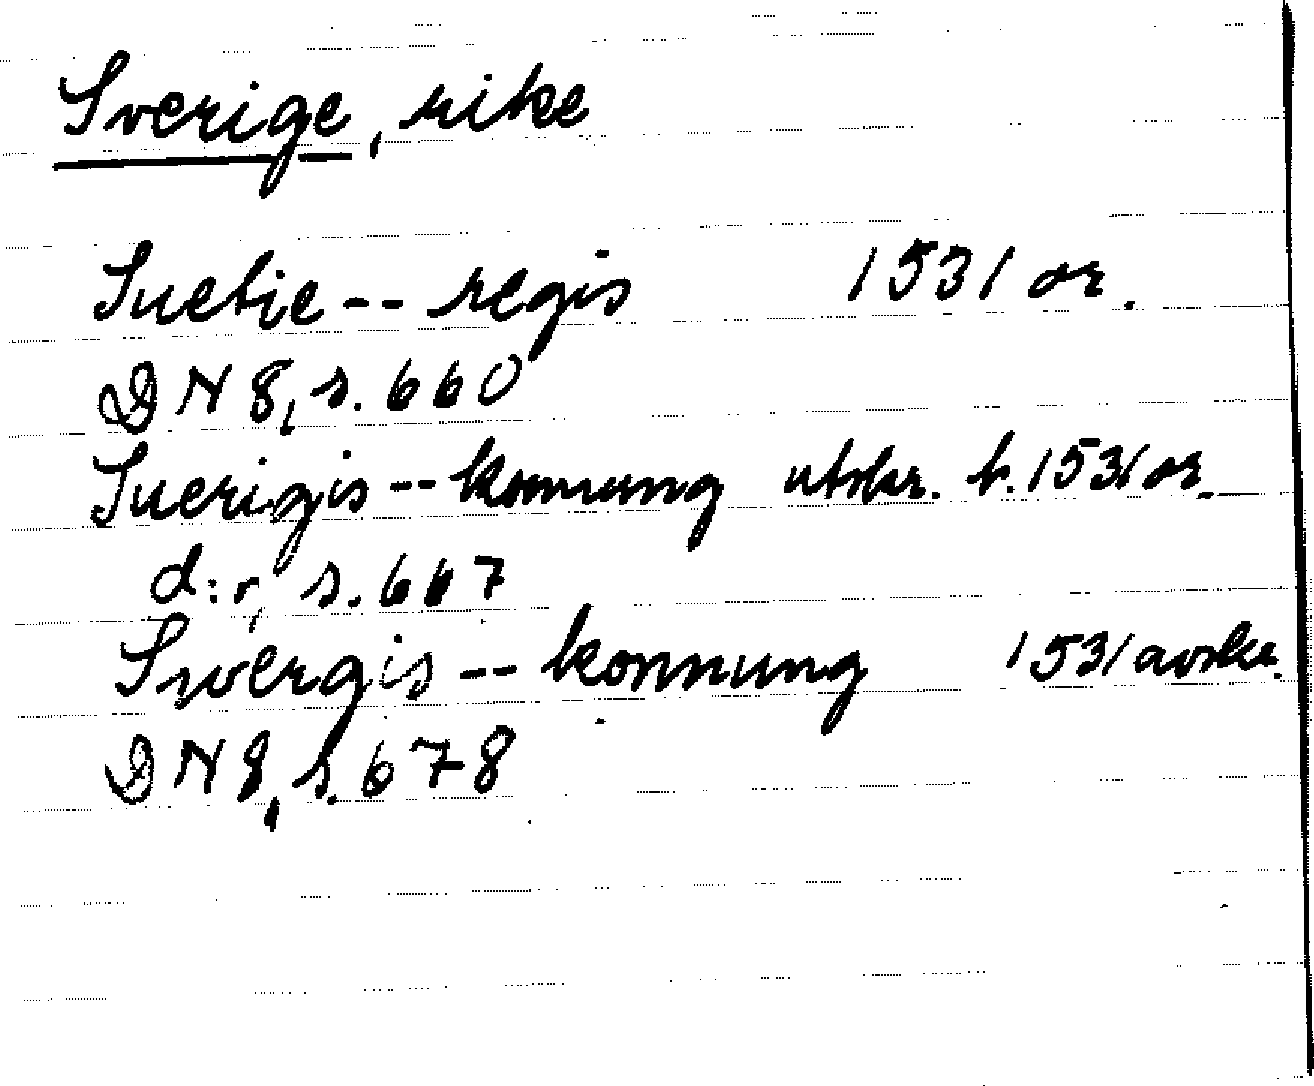 Sverige, rike
Suetie -- regis 1531 or.
DN 8, s. 660
Suerigis -- konnung utskr. b. 1531 or.
d:r, s. 667
Swergis -- konnung 1531 avskr.
DN 8, s. 678